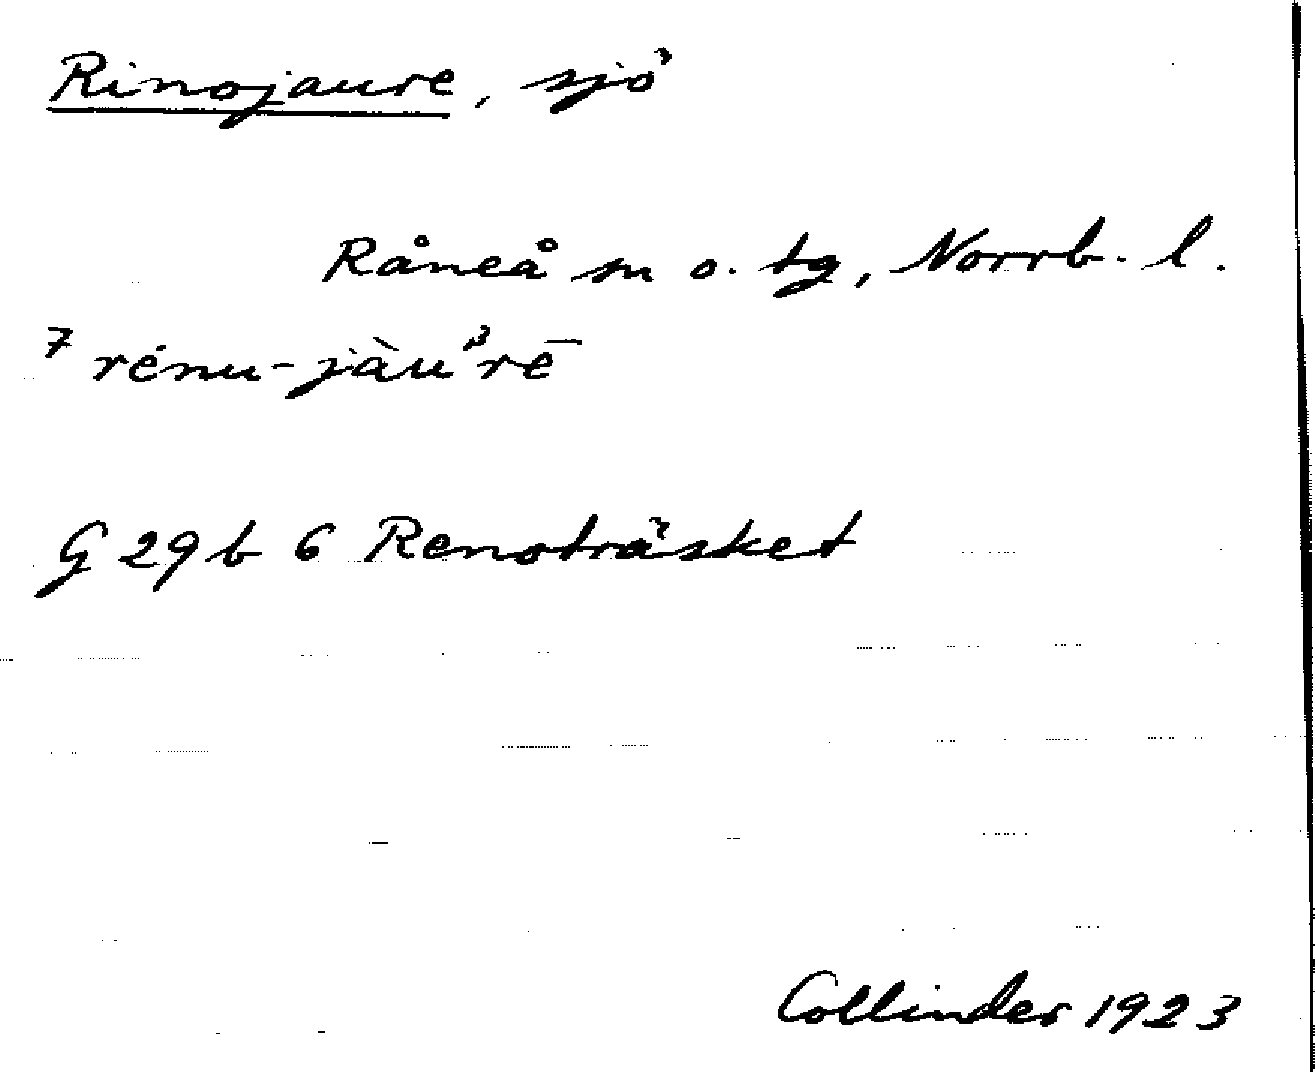 Rinojaure, sjö
Råneå sn o. tg, Norrb. l.
⁷ rénu-jàuᵝrē
G 29 b 6 Renoträsket
Collinder 1923